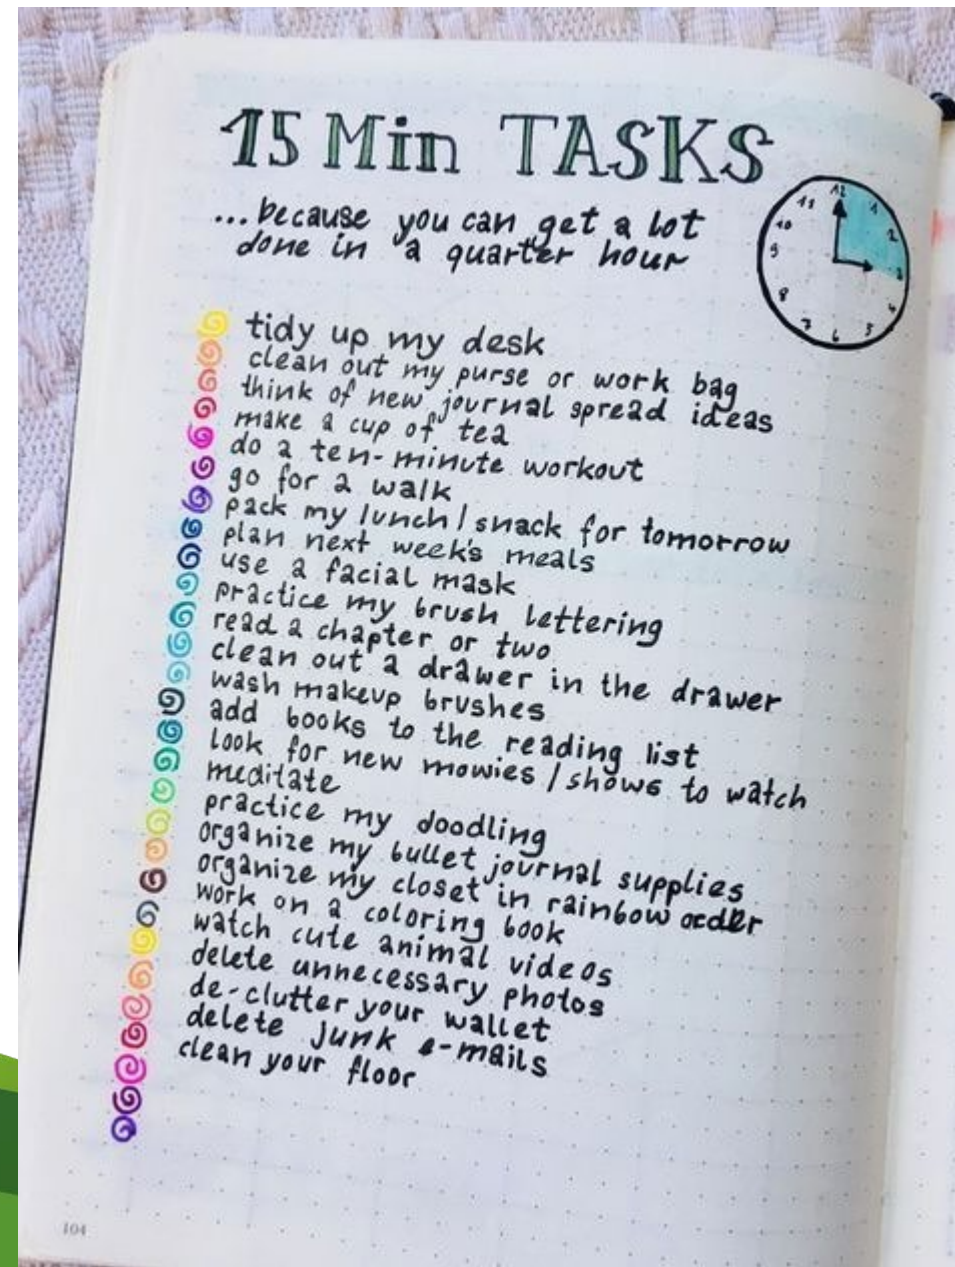 15 Min TASKS
...because you can get a lot
done in a quarter hour
12
1
2
3
4
5
6
7
8
9
10
11
tidy up my desk
clean out my purse or work bag
think of new journal spread ideas
make a cup of tea
do a ten-minute workout
go for a walk
pack my lunch/snack for tomorrow
plan next week's meals
use a facial mask
practice my brush lettering
read a chapter or two
clean out a drawer in the drawer
wash makeup brushes
add books to the reading list
look for new mowies/shows to watch
meditate
practice my doodling
organize my bullet journal supplies
organize my closet in rainbow order
work on a coloring book
watch cute animal videos
delete unnecessary photos
de-clutter your wallet
delete junk e-mails
clean your floor
104